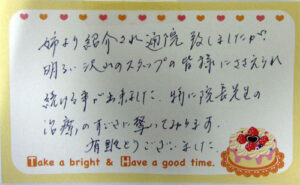 姉より紹介され通院致しましたが
明るい沢山のスタッフの皆様にささえられ
続ける事が出来ました。特に院長先生の
治療のすごさに驚いております。
有難とうございました。
Take a bright & Have a good time.